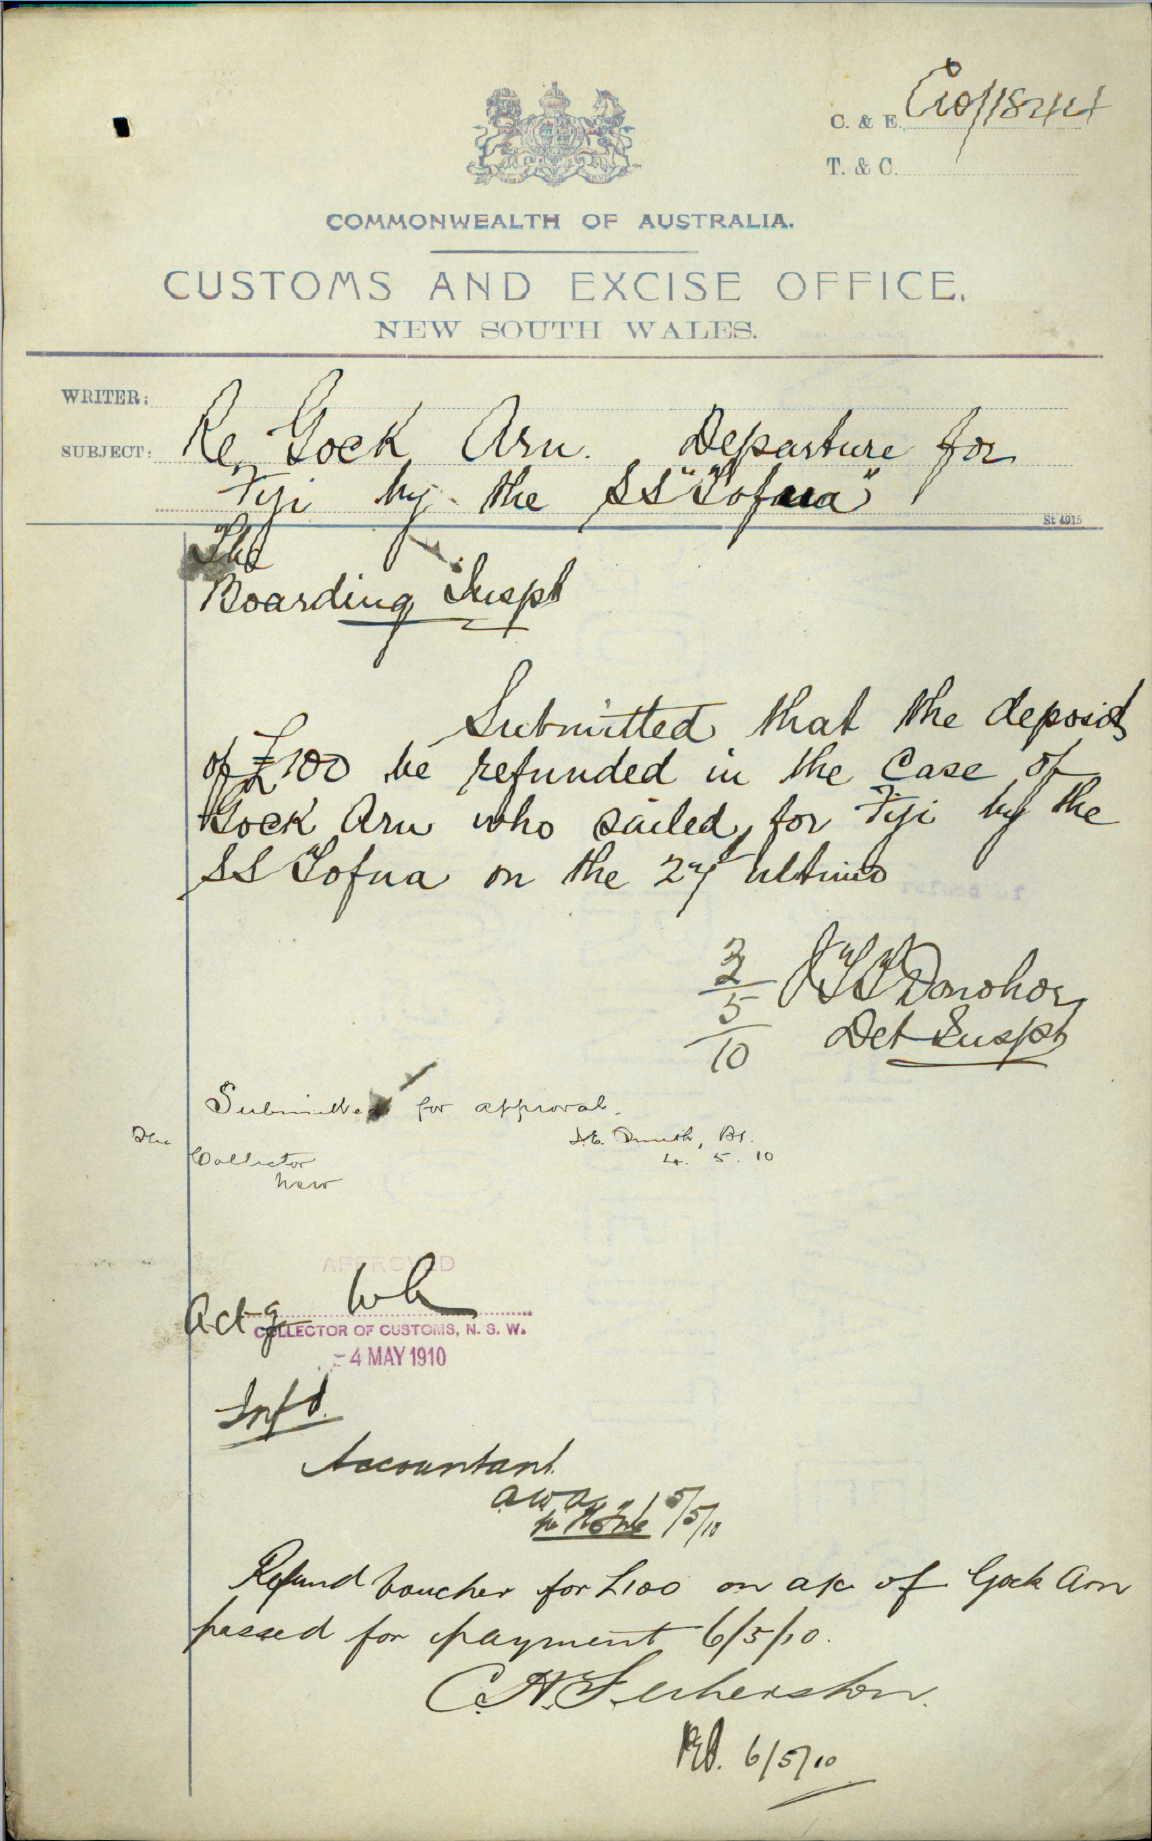 C. & E. C10/11824
T. & C.
COMMONWEALTH OF AUSTRALIA.
CUSTOMS AND EXCISE OFFICE,
NEW SOUTH WALES.
WRITER:
SUBJECT: Re Gock Arn. Departure for
Fiji by the SS "Tofua"
St 4915
The
Boarding Inspt
Submitted that the deposit
of £100 be refunded in the case of
Gock Arn who sailed for Fiji by the
SS Tofua on the 27 ultimo
3/5/10 Donohoe
Det Inspt
Submitted for approval.
The
Collector
NSW
4. 5. 10
APPROVED
Actg
COLLECTOR OF CUSTOMS, N. S. W.
- 4 MAY 1910
Accountant
5/5/10
Refund Voucher for £100 on a/c of Gock Arn
passed for payment 6/5/10.
6/5/10